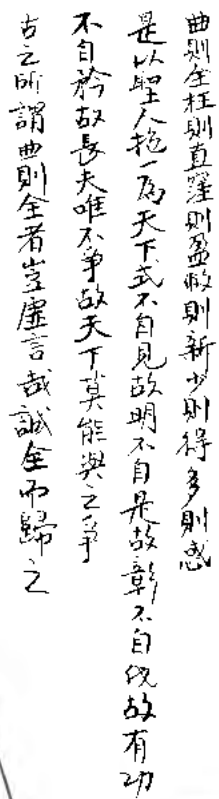 曲則全枉則直窪則盈敝則新少則得多則惑
是以聖人抱一為天下式不自見故明不自是故彰不自伐故有功
不自矜故長夫唯不爭故天下莫能與之爭
古之所謂曲則全者豈虛言哉誠全而歸之